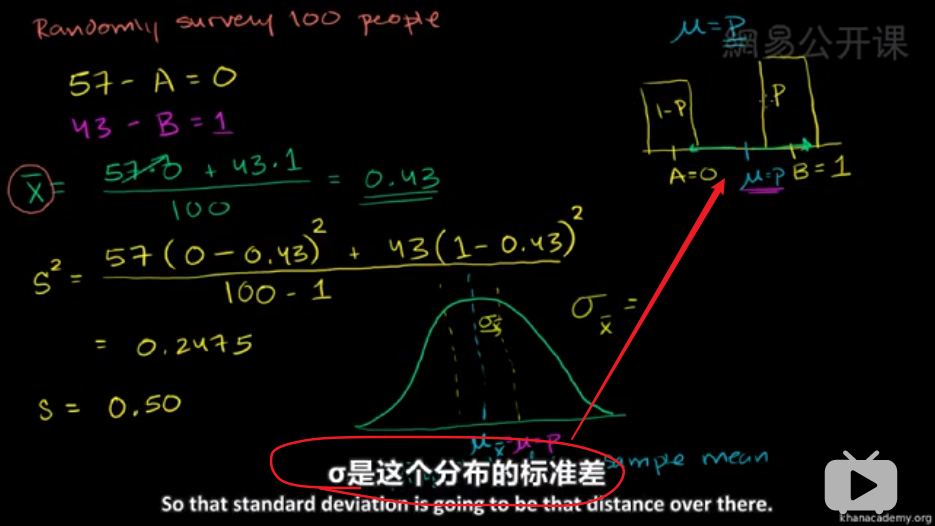 Randomly survey 100 people
μ = P
網易公开课
57 - A = 0
43 - B = 1
1-P
P
A=0
μ=P
B=1
x̄ = (57·0 + 43·1) / 100 = 0.43
S² = (57(0-0.43)² + 43(1-0.43)²) / (100-1)
σx̄
σx̄ =
= 0.2475
S = 0.50
μx̄ = μ = P
sample mean
σ是这个分布的标准差
So that standard deviation is going to be that distance over there.
khanacademy.org